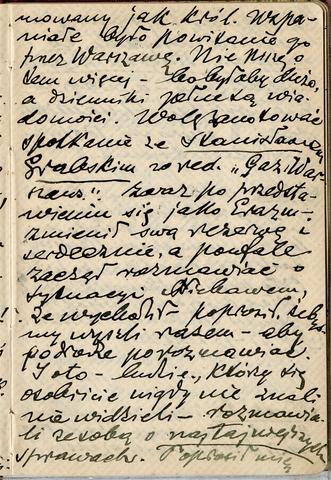 mowany jak król. Wspa-
niałe było powitanie go
przez Warszawę. Nie piszę o
tem więcej – bo byłoby dużo,
a dzienniki pełne są wia-
domości. Wolę zanotować
spotkanie ze Stanisławem
Grabskim w red. „Gaz. War-
szaws." Zaraz po przedsta-
wieniu się jako Erazm –
zmienił swą rezerwę i
serdecznie, a poufale
zaczął rozmawiać o
sytuacyi. Niebawem,
że wychodził – poprosił, żeby
my wyszli razem – aby
po drodze porozmawiać.
I oto – ludzie, którzy się
osobiście nigdy nie znali
na widzieli – rozmawia-
li ze sobą o najtajniejszych
sprawach. Poprosił mię